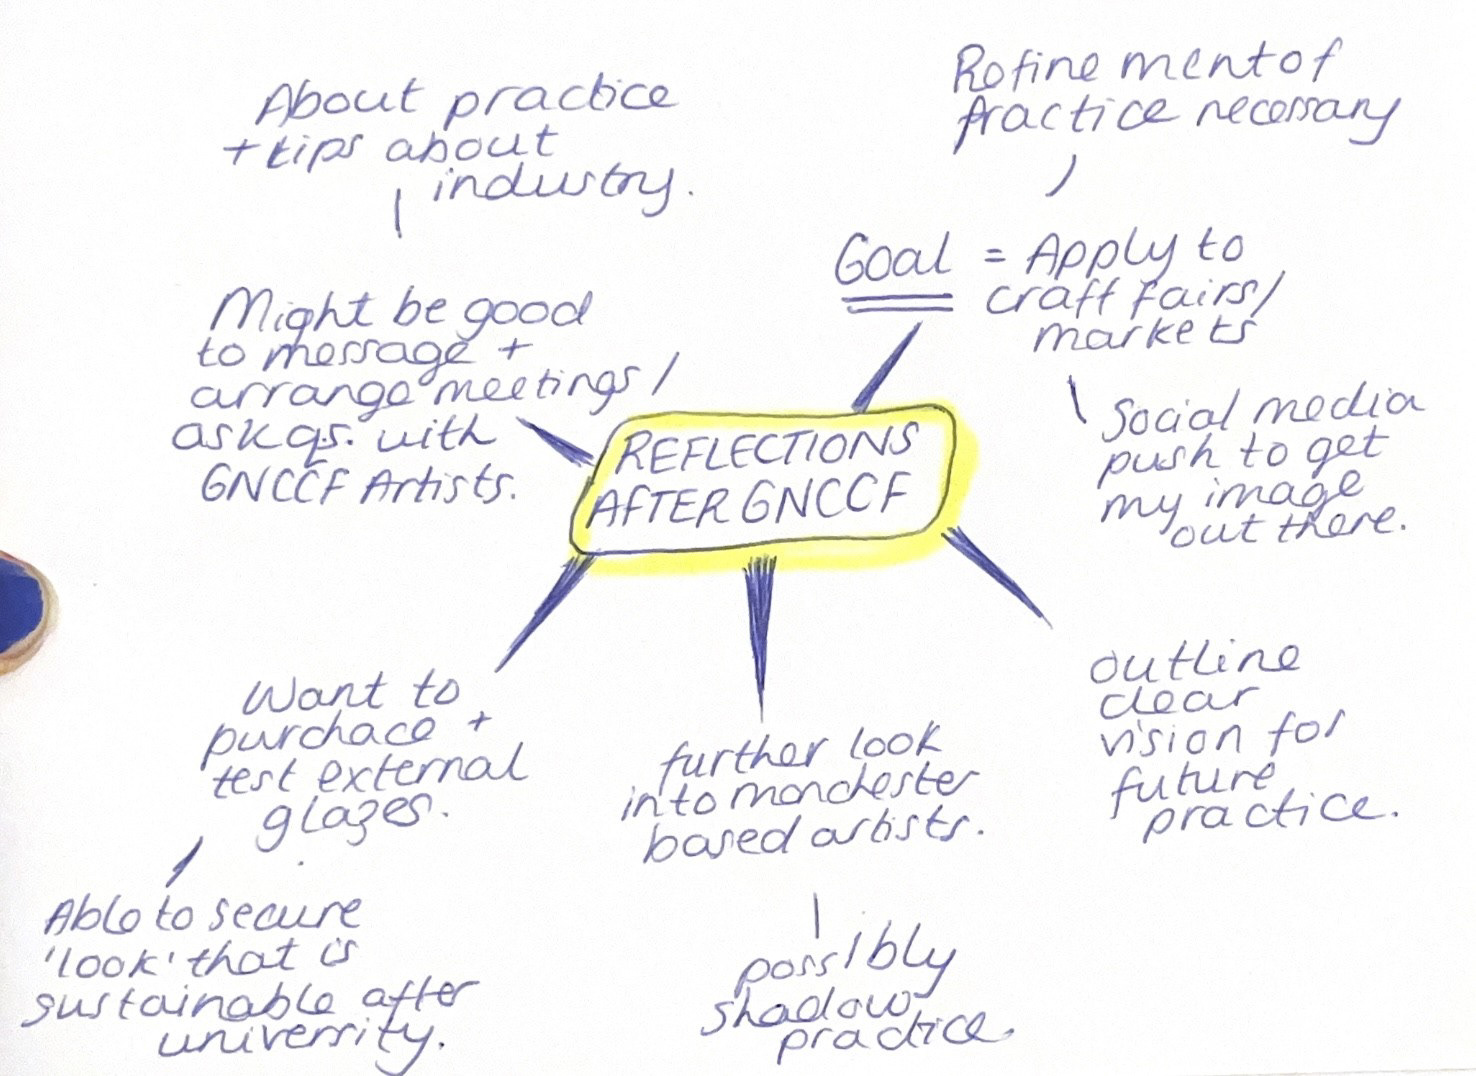 About practice
+ tips about
industry.
Might be good
to message +
arrange meetings /
ask qs. with
GNCCF Artists.
Refinement of
Practice necessary
Goal = Apply to
craft fairs/
markets
Social media
push to get
my image
out there.
REFLECTIONS
AFTER GNCCF
Want to
purchace +
test external
glazes.
Able to secure
'look' that is
sustainable after
university.
further look
into manchester
based artists.
possibly
shadow
practice.
outline
clear
vision for
future
practice.